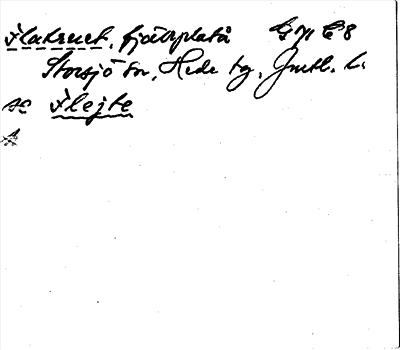 Flakruet, fjällplatå G 71 C 8
Storsjö sn, Hede tg, Jmtl. l.
se Flejte